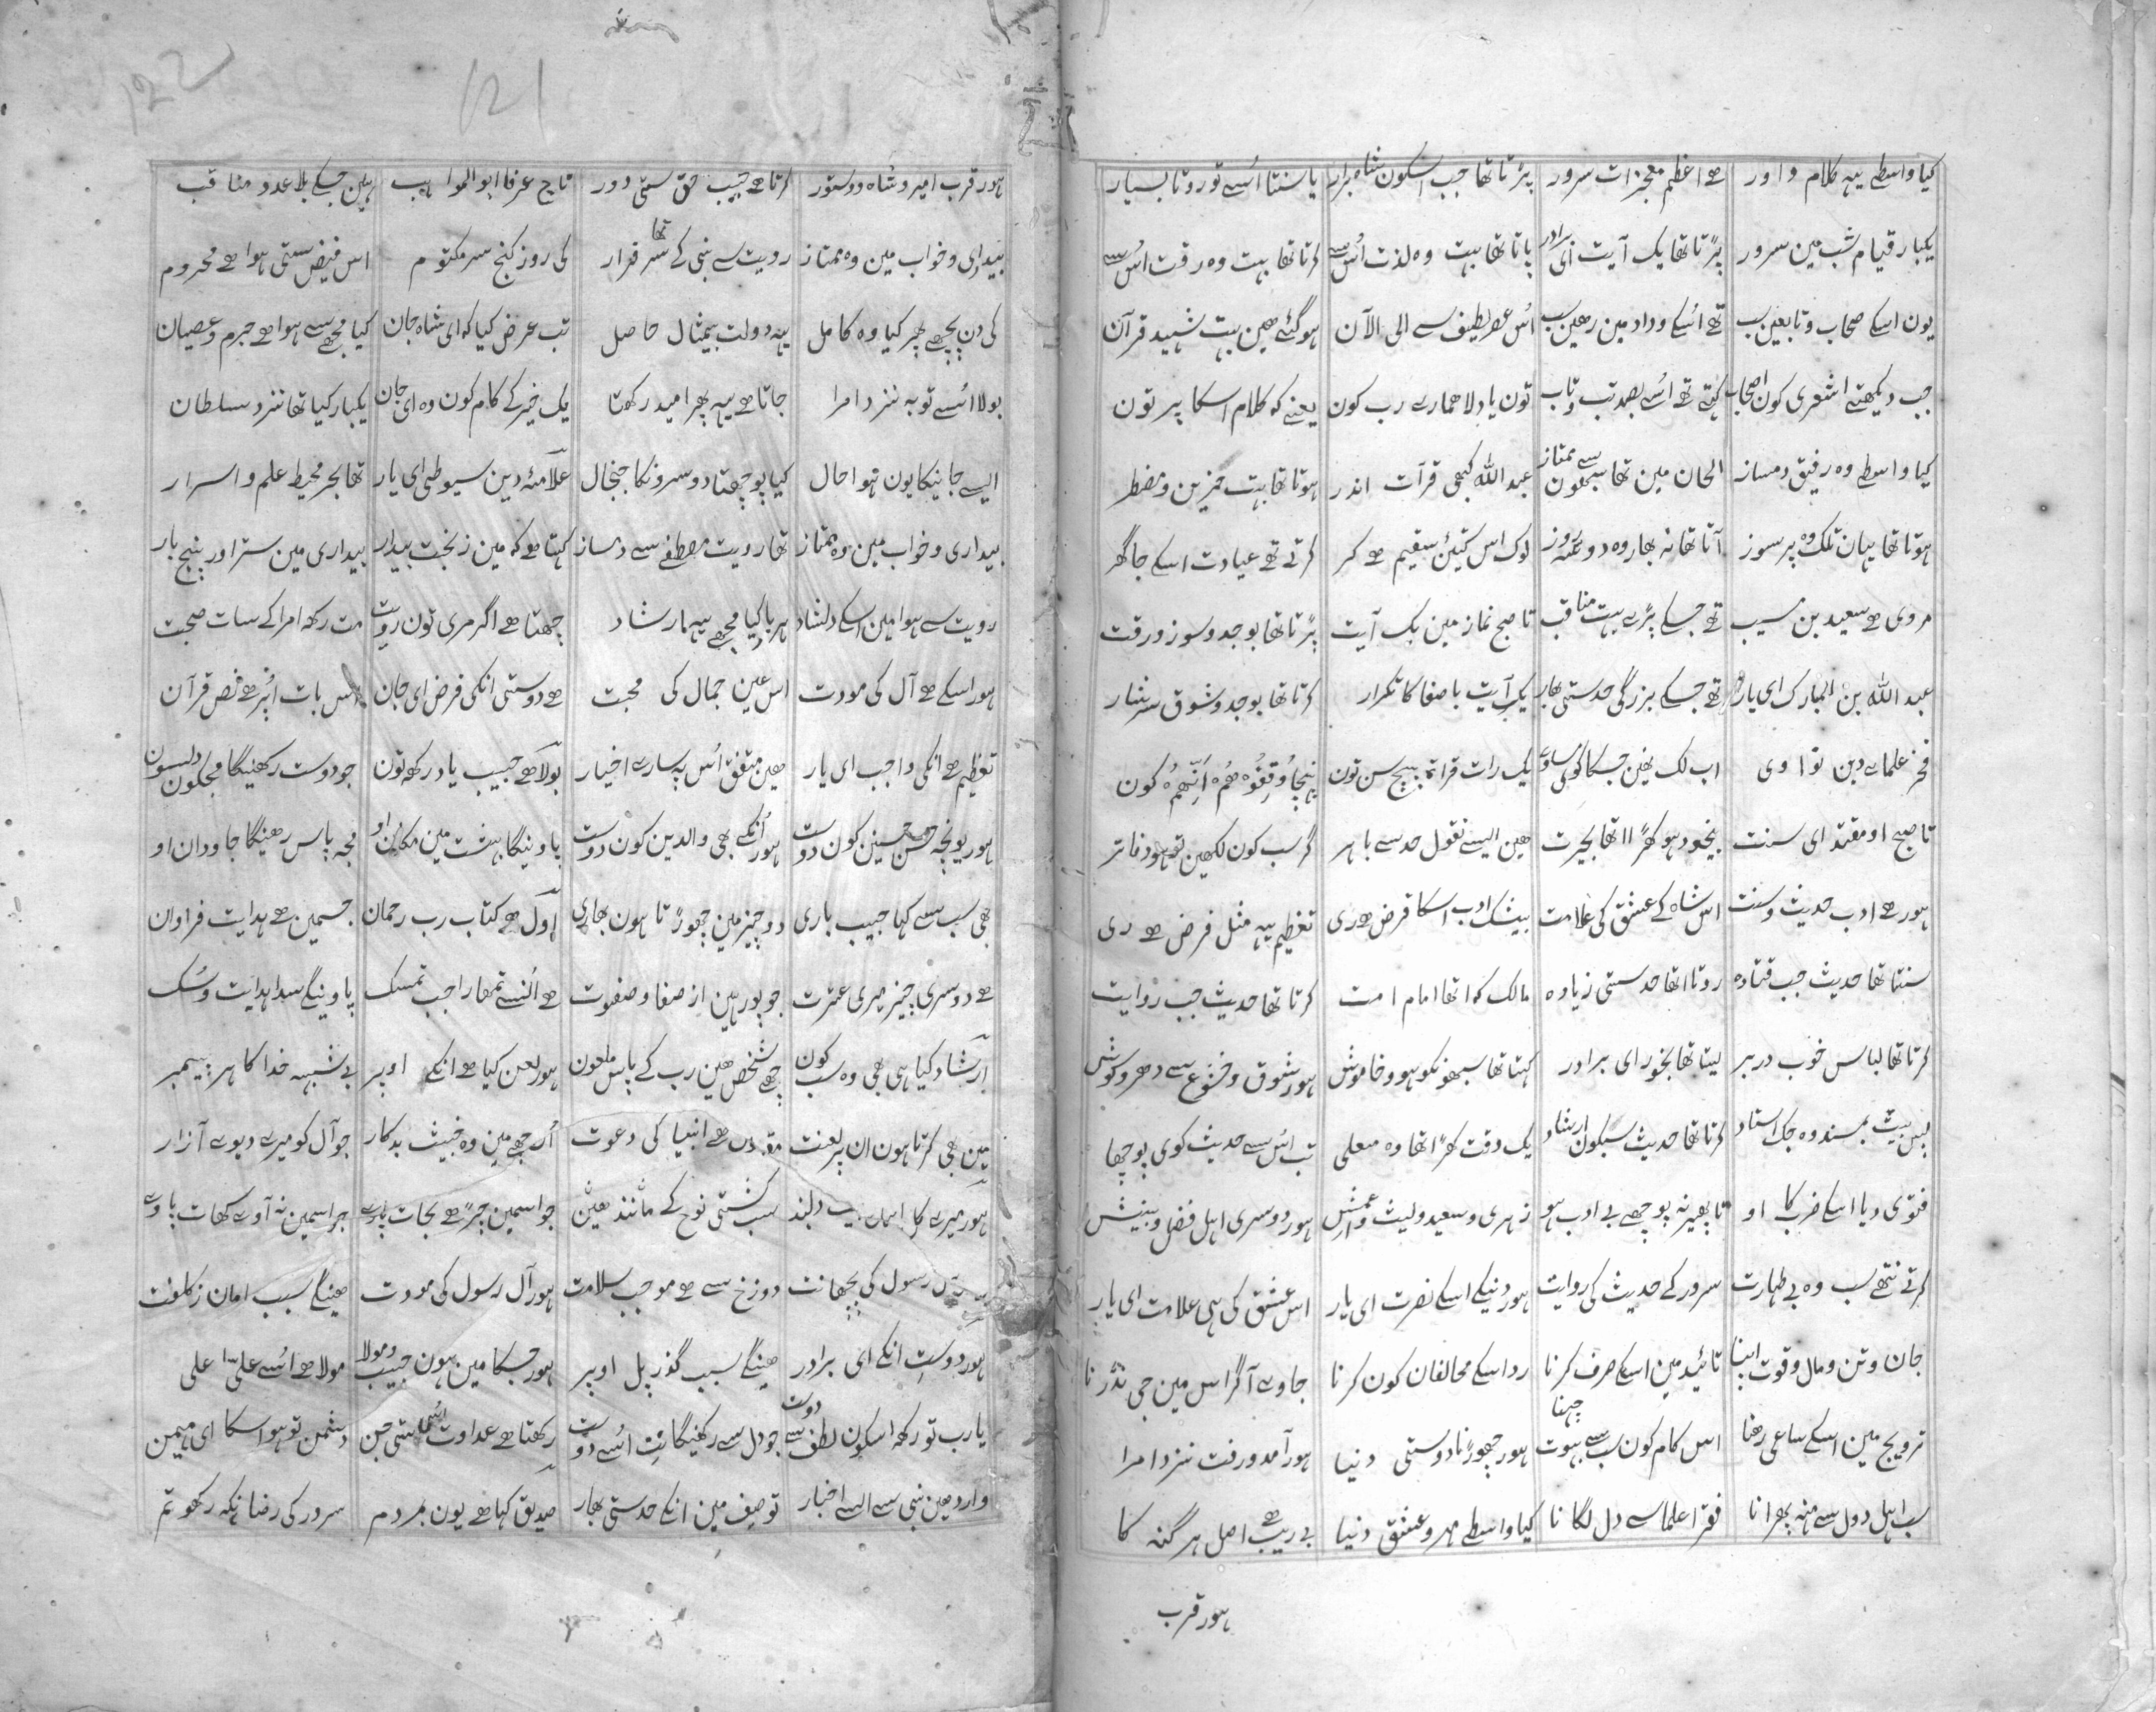 کیا واسطے یہہ کلام داور ھے اعظم معجزات سرور پڑتا تھا جب اسکون شاہ ابرار یا سنتا اُسے تو روتا بسیار
یکبار قیام شب مین سرور پڑتا تھا یک آیت ای برادر پاتا تھا بہت وہ لذت اُس سے کرتا تھا بہت وہ رقت اُس سے
یون اسکے صحاب و تابعین سب تھے اُسکے وداد مین رھین سب اُس عصر لطیف سے الی الآن ہو گئے ھین بہت شہید قرآن
جب دیکھتے اشعری کون اصحاب کہتے تھے اُسے بصد تب و تاب تون یاد دلا ھمارے رب کون یعنے کہ کلام اسکا پر تون
کیا واسطے وہ رفیق دمساز الحان مین تھا سبھون سے ممتاز عبد اللہ کبھی قرآت اندر ہوتا تھا بہت حزین و مضطر
ہوتا تھا یہان تلک وہ پر سوز آتا تھا نہ بھار وہ دو سہ روز لوک اس کتیئن سقیم ھے کر کرتے تھے عیادت اسکے جا گھر
مروی ھے سعید بن مسیب تھے جسکے بڑے بہت مناقب تا صبح نماز مین یک آیت پڑتا تھا بوجد و سوز و رقت
عبد اللہ بن المبارک ای یار تھے جسکے بزرگی حد ستی بھار یک آیت با صفا کا تکرار کرتا تھا بوجد و شوق سرشار
فخر علماے دین نواوی اب لک نھین جسکا کوی مساوی یک رات قراۃ بیچ سن تون پہنچا وَقِفُوْھُمْ اِنَّھُمْ کون
تا صبح او مقتدای سنت بیخود ہو کھڑا اتھا بحیرت ھین ایسے نقول حد سے باہر گر سب کون لکھین تو ہو دفاتر
ہور ھے ادب حدیث و سنت اس شاہ کے عشق کی علامت بیشک ادب اسکا فرض ھے ری تعظیم یہہ مثل فرض ھے ری
سنتا تھا حدیث جب قتادہ روتا اتھا حد ستی زیادہ مالک کہ اتھا امام امت کرتا تھا حدیث جب روایت
کرتا تھا لباس خوب در بر لیتا تھا بخور ای برادر کہتا تھا سبھونکو ہووو خاموش ہور شوق و خضوع سے دھرو گوش
پس بیٹ بمسند وہ جگ استاد کرتا تھا حدیث سبکون ارشاد یک وقت کھڑا اتھا وہ معلی تب اُس سے حدیث کوی پوچھا
فتوی دیا اسکے ضرب کا او تا پھیر نہ پوچھے بے ادب ہو زھری و سعید و لیث و اعمش ہور دوسری اہل فضل و بینش
کرتے نتھے سب وہ بے طہارت سرور کے حدیث کی روایت ہور دینکے اسکے نصرت ای یار اس عشق کی ہی علامت ای یار
جان و تن و مال و قوت اپنا تائید مین اسکے صرف کرنا رد اسکے مخالفان کون کرنا جاوے اگر اس مین جی نڈرنا
ترویج مین اسکے ساعی رھنا اس کام کون سب سے بہوت چہنا ہور چھوڑنا دوستی دنیا ہور آمد و رفت نزد امرا
سب اہل دول سے منہ پھرانا فقرا علما سے دل لگانا کیا واسطے مہر و عشق دنیا بے ریب ھے اصل ہر گنہ کا
ہور قرب
121
122
ہور قرب امیر و شاہ و دستور کرتا ھے حبیب حق ستی دور تاج عرفا ابو المواہب ہین جسکے بلا عدد مناقب
بیداری و خواب مین وہ ممتاز رویت سے نبی کے تھا سرفراز کی روز کنج سر مکتوم اس فیض ستی ہوا ھے محروم
کی دن پیچھے پھر کیا وہ کامل یہہ دولت بیمثال حاصل تب عرض کیا کہ ای شاہ جان کیا مجھ سے ہوا ھے جرم و عصیان
بولا اُسے تو بہ نزد امرا جاتا ھے یہہ پھر امید رکھتا یک خیر کے کام کون وہ ای جان یکبار کیا تھا نزد سلطان
ایسے جانیکا یون ہوا حال کیا پوچھتا دوسرونکا جنجال علّامۂ دین سیوطی ای یار تھا بحر محیط علم و اسرار
بیداری و خواب مین وہ ممتاز تھا رویت مصطفے سے دمساز کہتا ھے کہ مین ز بخت بیدار بیداری مین ستر اور پنج بار
رویت سے ہوا مین اسکے دلشاد ہر بار کیا مجھے یہہ ارشاد چھتا ھے اگر مری تون رویت مت رکھ امرا کے سات صحبت
ہور اسکے ھے آل کی مودت اس عین جمال کی محبت ھے دوستی انکی فرض ای جان اس بات اُپر ھے نص قرآن
تعظیم ھے انکی واجب ای یار ھین متفق اُس پہ سارے اخیار بولا ھے حبیب یاد رکھ تون جو دوست رکھیگا مجکون دلسون
ہور یونچہ حسن حسین کون دوست ہور اُنکے بھی والدین کون دوست پاویگا بہشت مین مکان او مجہ پاس رھیگا جاودان او
بھی سب سے کہا حبیب باری دو چیز مین چھوڑتا ہون بھاری اوّل ھے کتاب رب رحمان جسمین ھے ہدایت فراوان
ھے دوسری چیز میری عترت جو پور ہین از صفا و صفوت ھے اُنسے تمھارا جب تمسک پاوینگے سدا ہدایت و سُک
ارشاد کیا ہی بھی وہ سب کون چھے شخص ھین رب کے پاس ملعون ہور لعن کیا ھے انکے اوپر بے شبہہ خدا کا ہر پیمبر
مین بھی کرتا ہون ان پر لعنت ھے انبیا کی دعوت اُن چھے مین وہ خبیث بدکار جو آل کو میرے دیوے آزار
ہور میرے دلبند سب کشتی نوح کے مانند ھین جو اسمین چڑھے نجات پاوے ہر اسمین نہ آوے کھات پاوے
رسول کی پچھانت دوزخ سے ھے موجب سلامت ہور آل رسول کی مودت ھیگی سبب امان ز کلفت
ہور دوست انکے ای برادر ھیگی سبب گذر پل اوپر ہور جسکا مین ہون حبیب و مولا مولا ھے اُسے علی علی
یا رب تو رکھ اسکون لطف سے دوست جو دل سے رکھیگا اُسے دوست رکھتا ھے عداوت اُس ستی جن دشمن تو ہو اسکا ای مہیمن
وارد ھین نبی سے ایسے اخبار توصیف مین انکے حد ستی بھار صدیق کہا ھے یون بمردم سرور کی رضا نگہ رکھو تم